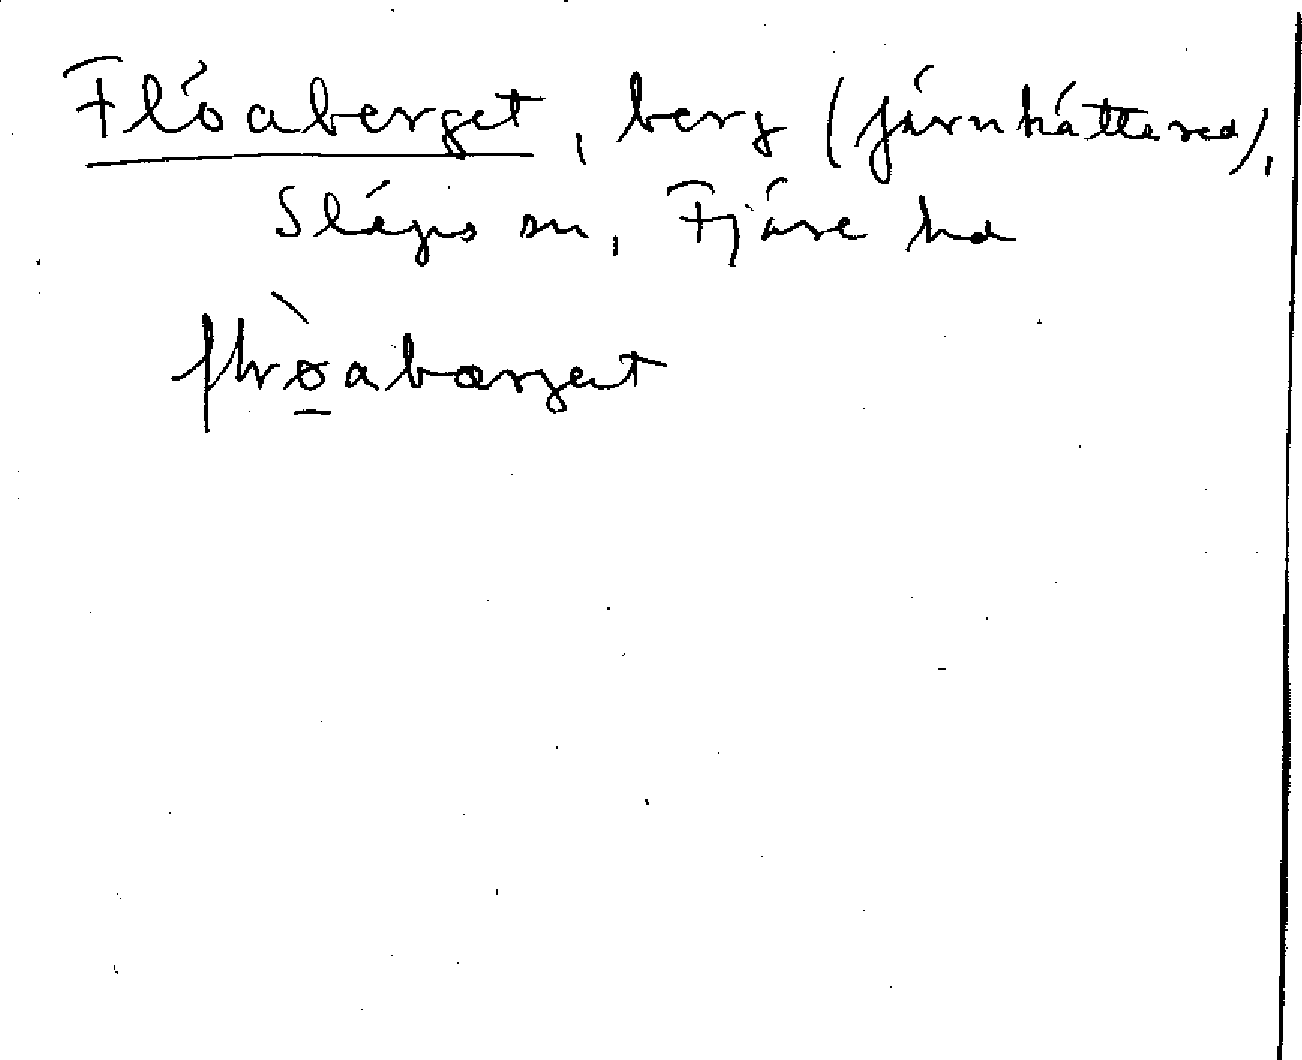 Flöaberget, berg (Järnkättered),
Släps sn, Fjäre hd
flvòabærget